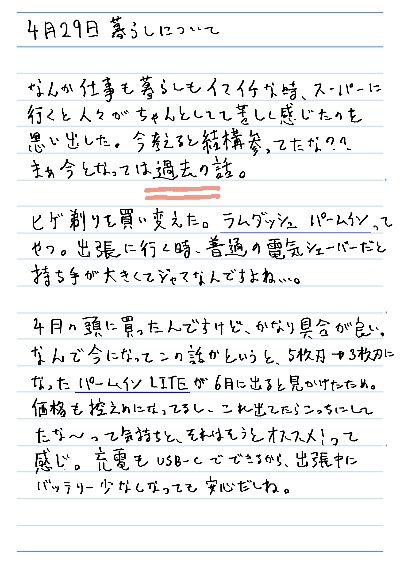 4月29日 暮らしについて
なんか仕事も暮らしもイマイチな時、スーパーに
行くと人々がちゃんとしてて苦しく感じたのを
思い出した。今考えると結構参ってたな??
まぁ今となっては過去の話。
ヒゲ剃りを買い変えた。ラムダッシュ パームインって
やつ。出張に行く時、普通の電気シェーバーだと
持ち手が大きくてジャマなんですよね…。
4月の頭に買ったんですけど、かなり具合が良い。
なんで今になってこの話かというと、5枚刃→3枚刃に
なった パームイン LITEが6月に出ると見かけたため。
価格も控えめになってるし、これ出てたらこっちにして
たな〜って気持ちと、それはもうとオススメ!って
感じ。充電もUSB-Cでできるから、出張中に
バッテリー少なくなっても安心だしね。